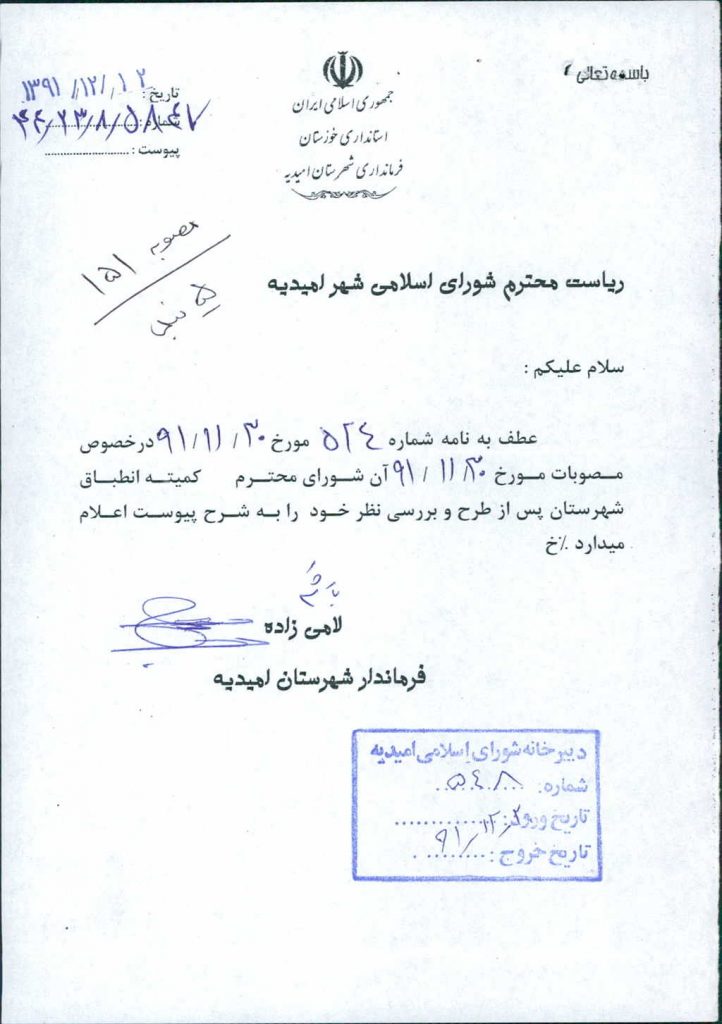 باسمه تعالی
جمهوری اسلامی ایران
استانداری خوزستان
فرمانداری شهرستان امیدیه
تاریخ: ۱۳۹۱/۱۲/۰۲
شماره:
پیوست:
مصوبه ۱۵۱
ریاست محترم شورای اسلامی شهر امیدیه
سلام علیکم :
عطف به نامه شماره ۵۲۴ مورخ ۹۱/۱۱/۳۰ درخصوص
مصوبات مورخ ۹۱/۱۱/۳۰ آن شورای محترم کمیته انطباق
شهرستان پس از طرح و بررسی نظر خود را به شرح پیوست اعلام
میدارد ٪خ
لامی زاده
فرماندار شهرستان امیدیه
دبیرخانه شورای اسلامی امیدیه
شماره: ۵۴۸
تاریخ ورود: ۹۱/۱۲/۲
تاریخ خروج: